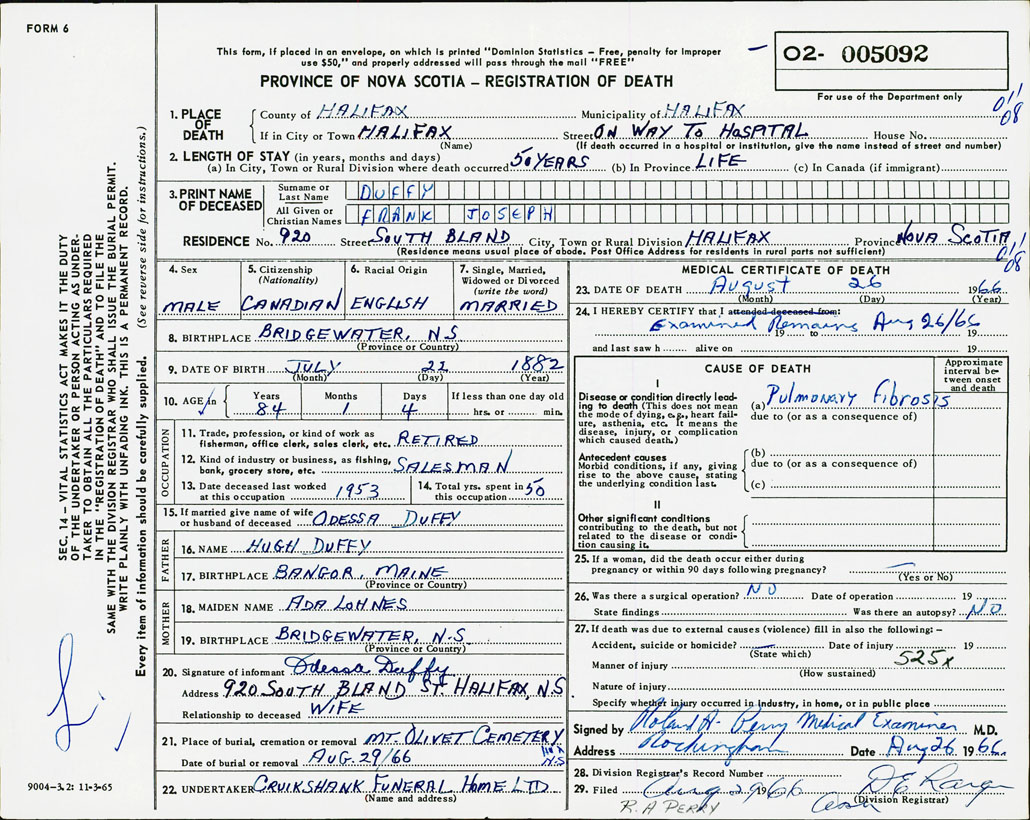 FORM 6
This form, if placed in an envelope, on which is printed "Dominion Statistics – Free, penalty for improper
use $50," and properly addressed will pass through the mail "FREE"
PROVINCE OF NOVA SCOTIA – REGISTRATION OF DEATH
02- 005092
For use of the Department only
011
08
1. PLACE OF DEATH
County of HALIFAX Municipality of HALIFAX
If in City or Town HALIFAX Street ON WAY TO HOSPITAL House No.
(Name) (If death occurred in a hospital or institution, give the name instead of street and number)
2. LENGTH OF STAY (in years, months and days)
(a) In City, Town or Rural Division where death occurred 50 YEARS (b) In Province LIFE (c) In Canada (if immigrant)
3. PRINT NAME OF DECEASED
Surname or Last Name DUFFY
All Given or Christian Names FRANK JOSEPH
RESIDENCE No. 920 Street SOUTH BLAND City, Town or Rural Division HALIFAX Province NOVA SCOTIA
(Residence means usual place of abode. Post Office Address for residents in rural parts not sufficient)
011
08
4. Sex
MALE
5. Citizenship
(Nationality)
CANADIAN
6. Racial Origin
ENGLISH
7. Single, Married,
Widowed or Divorced
(write the word)
MARRIED
8. BIRTHPLACE BRIDGEWATER, N.S
(Province or Country)
9. DATE OF BIRTH JULY 22 1882
(Month) (Day) (Year)
10. AGE in Years Months Days If less than one day old
84 1 4 hrs. or min.
OCCUPATION
11. Trade, profession, or kind of work as
fisherman, office clerk, sales clerk, etc. RETIRED
12. Kind of industry or business, as fishing,
bank, grocery store, etc. SALESMAN
13. Date deceased last worked
at this occupation 1953
14. Total yrs. spent in
this occupation 50
15. If married give name of wife
or husband of deceased ODESSA DUFFY
FATHER
16. NAME HUGH DUFFY
17. BIRTHPLACE BANGOR, MAINE
(Province or Country)
MOTHER
18. MAIDEN NAME ADA LOHNES
19. BIRTHPLACE BRIDGEWATER, N.S
(Province or Country)
20. Signature of informant Odessa Duffy
Address 920 SOUTH BLAND ST. HALIFAX, N.S
Relationship to deceased WIFE
21. Place of burial, cremation or removal MT. OLIVET CEMETERY
Date of burial or removal AUG. 29/66 HFX N.S
22. UNDERTAKER CRUIKSHANK FUNERAL HOME LTD
(Name and address)
MEDICAL CERTIFICATE OF DEATH
23. DATE OF DEATH August 26 1966
(Month) (Day) (Year)
24. I HEREBY CERTIFY that I attended deceased from:
Examined Remains Aug 26/66
19 to 19
and last saw h alive on 19
CAUSE OF DEATH
Approximate interval between onset and death
I
Disease or condition directly leading to death (This does not mean the mode of dying, e.g., heart failure, asthenia, etc. It means the disease, injury, or complication which caused death.)
(a) Pulmonary Fibrosis
due to (or as a consequence of)
Antecedent causes
Morbid conditions, if any, giving rise to the above cause, stating the underlying condition last.
(b)
due to (or as a consequence of)
(c)
II
Other significant conditions
contributing to the death, but not related to the disease or condition causing it.
25. If a woman, did the death occur either during
pregnancy or within 90 days following pregnancy?
(Yes or No)
26. Was there a surgical operation? NO Date of operation 19
State findings Was there an autopsy? NO
27. If death was due to external causes (violence) fill in also the following: –
Accident, suicide or homicide? Date of injury 19
(State which)
525x
Manner of injury
(How sustained)
Nature of injury
Specify whether injury occurred in industry, in home, or in public place
Signed by Roland A. Perry Medical Examiner M.D.
Address Rockingham Date Aug 26 1966
28. Division Registrar's Record Number
29. Filed Aug 29 1966
(Division Registrar)
R. A PERRY
SEC. 14 – VITAL STATISTICS ACT MAKES IT THE DUTY
OF THE UNDERTAKER OR PERSON ACTING AS UNDER-
TAKER TO OBTAIN ALL THE PARTICULARS REQUIRED
IN THE "REGISTRATION OF DEATH" AND TO FILE THE
SAME WITH THE DIVISION REGISTRAR WHO SHALL ISSUE THE BURIAL PERMIT.
WRITE PLAINLY WITH UNFADING INK. THIS IS A PERMANENT RECORD.
Every item of information should be carefully supplied. (See reverse side for instructions.)
9004–3.2: 11-3-65